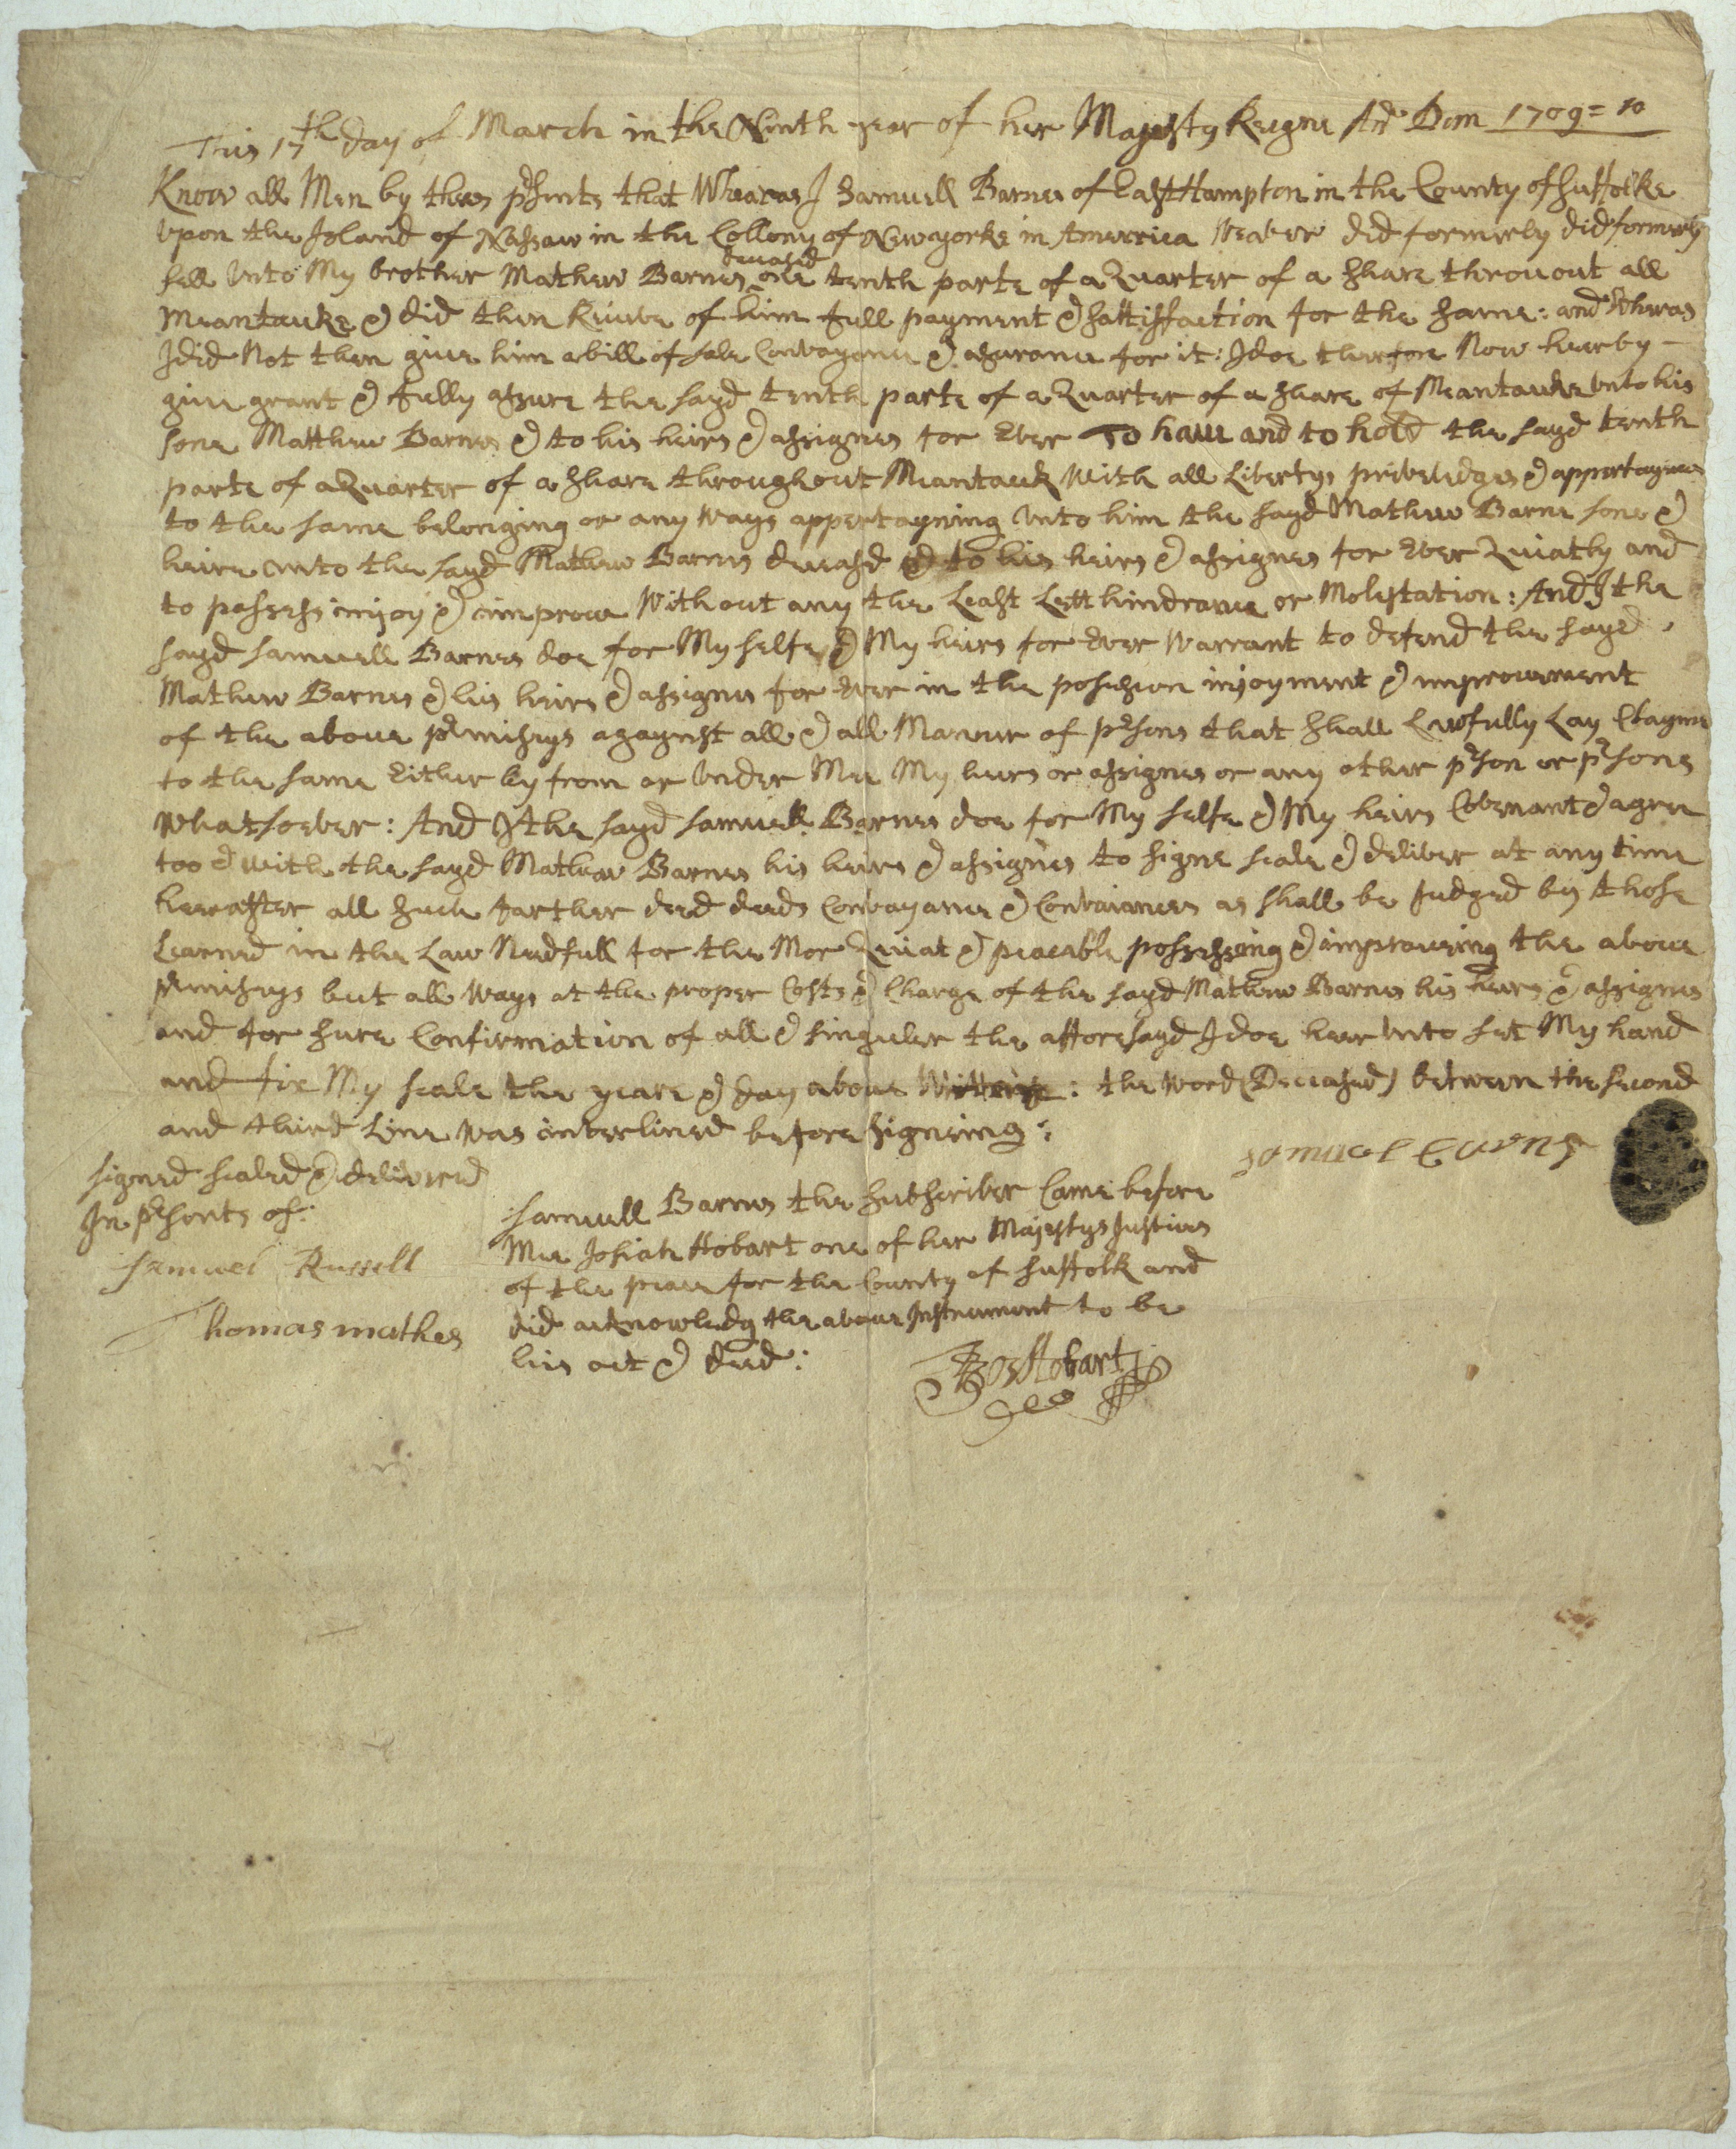 This 17th day of March in the Ninth year of her Majesty Reigne Ano Dom 1709=10
Know all Men by thes prsents that Wheareas I Samuell Barnes of EastHampton in the County of Suffolke
Vpon the Island of Nassaw in the Collony of Newyorke in Amerrica Weaver did formerly did formerly
deceased
sell Vnto My brother Mathew Barnes one tenth parte of a Quarter of a share throuout all
Meantauke & did then Receive of him full payment & sattisfaction for the same: and Wheras
I did Not then give him a bill of sale Convayance & asurance for it: I doe therfore Now heerby -
give grant & fully assure the sayd tenth parte of a Quarter of a share of Meantauke Vnto his
sone Matthew Barnes & to his heirs & assignes for Ever To have and to hold the sayd tenth
parte of a Quarter of a share throughout Meantauk With all Libertys priveledges & appertaynces
to the same belonging or any Ways appertayning Vnto him the sayd Mathew Barne sone &
heire vnto the sayd Mathew Barnes deceasd & to his heirs & assignes for Ever Quiatly and
to possess injoy & improve Without any the Least Lett hindrance or Molestation: And I the
sayd Samuell Barnes doe for My selfe & My heirs for Ever Warrant to defend the sayd
Mathew Barnes & his heirs & assignes for Ever in the possesion injoyment & improvement
of the above prmissys agaynst all & all Manner of prsons that shall Lawfully Lay Clayme
to the same Either by from or Vnder Mee My heirs or assignes or any other prson or prsons
Whatsoever: And I the sayd Samuell Barnes doe for My selfe & My heirs Covenant & agree
too & with the sayd Mathew Barnes his heires & assignes to signe seale & deliver at any time
hereafter all such farther deed deeds Convayance & Convaiances as shall be Judged by those
Learned in the Law Needfull for the Mor Quiat & peaceable possessing & improveing the above
prmissys but all Ways at the proper Costs & Charge of the sayd Mathew Barnes his heirs & assignes
and for sure Confirmation of all & singuler the afforesayd I doe heer Vnto set My hand
and fix My seale the yeare & day above : the Word (Deceased) between the second
and third Line Was interlined before signeing:
Samuel Barns
signed sealed & delivered
In prsents of:
Samuel Russell
Thomas mathes
Samuell Barnes the subscriber Came before
Mee Josiah Hobart one of her Majestys Justices
of the peace for the County of Suffolk and
did acknowledg the above Instrument to be
his act & deed:
Jos Hobart